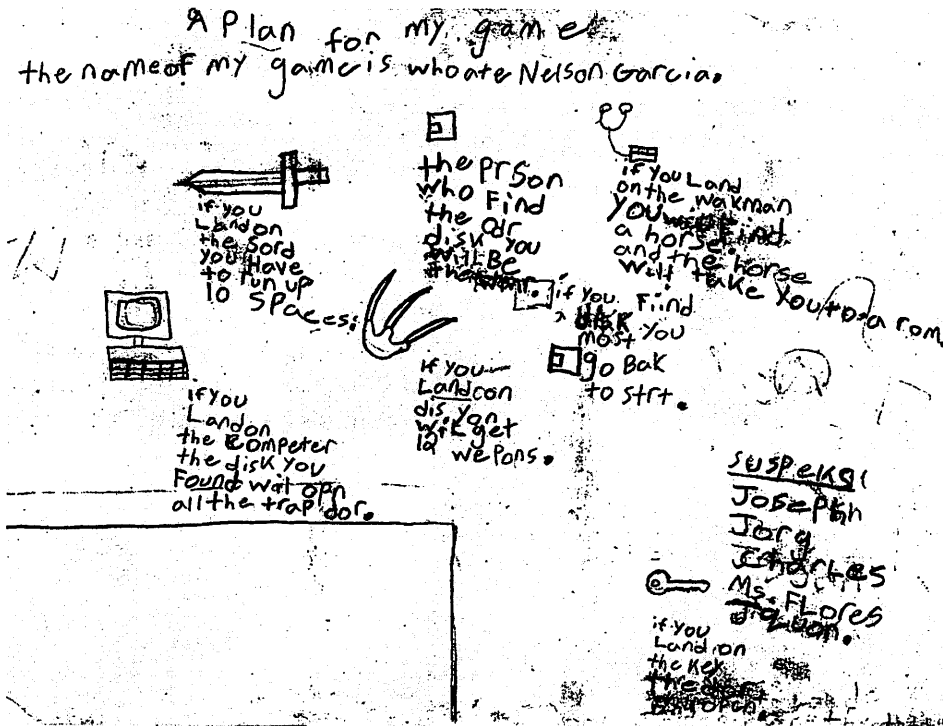 A Plan for my game
the name of my game is who ate Nelson Garcia.
if you
Land on
the Sord
you Have
to run up
10 SPaces.
the prson
who Find
the
disk you
will BE
the
if you Land
on the wakman
you Find
a horse.
and the horse
will take you to a rom.
if you Fiind
disk
most you
go Bak
to strt.
if you
Land on
dis you
will get
12 wepons.
if you
Land on
the Competer
the disk you
Found wil opn
all the trap dor.
SUSPeKS!
Joseph
Jorg
Charles
Ms. FLores
if you
Land on
the Key
the
open.